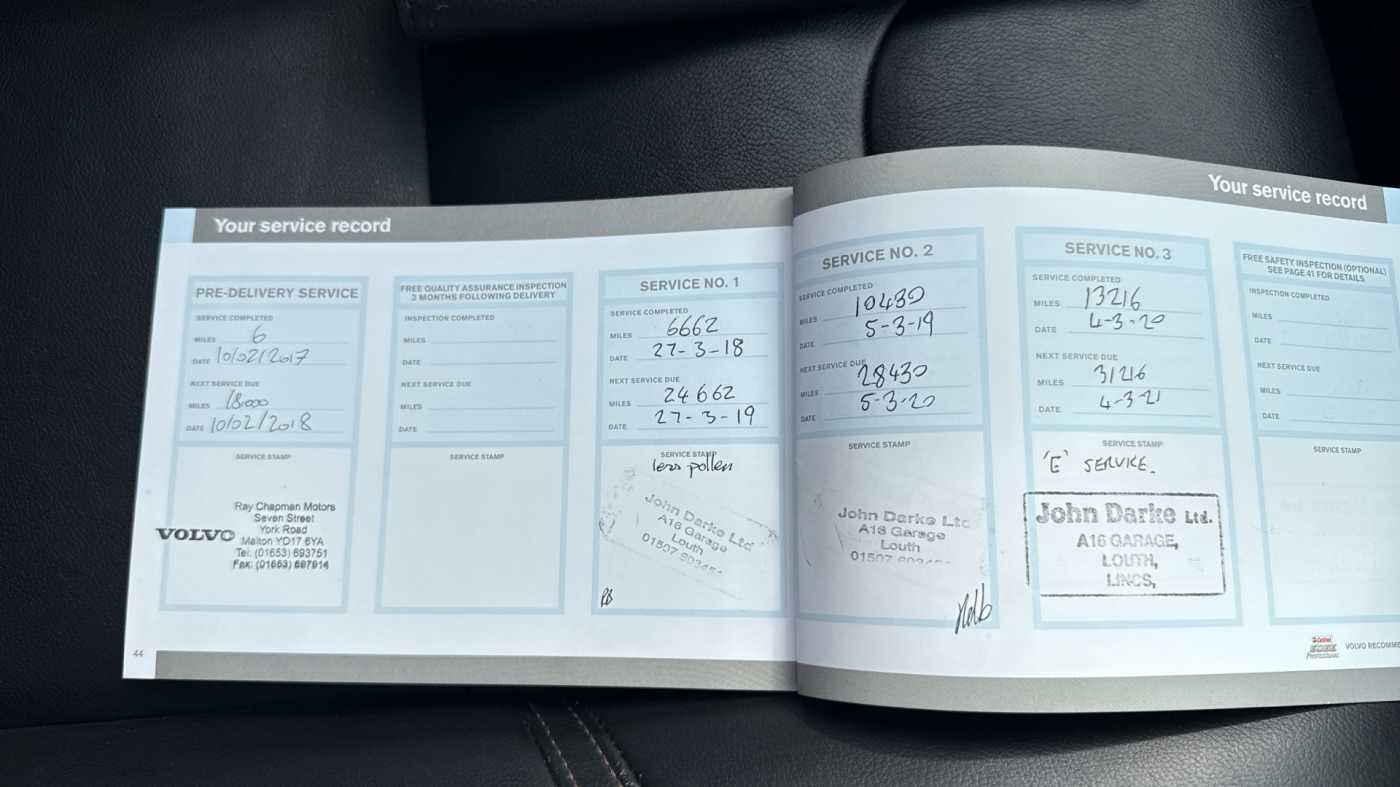 Your service record
PRE-DELIVERY SERVICE
SERVICE COMPLETED
MILES 6
DATE 10/02/2017
NEXT SERVICE DUE
MILES 18.000
DATE 10/02/2018
SERVICE STAMP
VOLVO
Ray Chapman Motors
Seven Street
York Road
Malton YO17 6YA
Tel: (01653) 693751
Fax: (01653) 697914
FREE QUALITY ASSURANCE INSPECTION
3 MONTHS FOLLOWING DELIVERY
INSPECTION COMPLETED
MILES
DATE
NEXT SERVICE DUE
MILES
DATE
SERVICE STAMP
SERVICE NO. 1
SERVICE COMPLETED
MILES 6662
DATE 27-3-18
NEXT SERVICE DUE
MILES 24662
DATE 27-3-19
SERVICE STAMP
less pollen
John Darke Ltd
A16 Garage
Louth
01507
44
Your service record
SERVICE NO. 2
SERVICE COMPLETED
MILES 10430
DATE 5-3-19
NEXT SERVICE DUE
MILES 28430
DATE 5-3-20
SERVICE STAMP
John Darke Ltd
A16 Garage
Louth
01507
SERVICE NO. 3
SERVICE COMPLETED
MILES 13216
DATE 4-3-20
NEXT SERVICE DUE
MILES 31216
DATE 4-3-21
SERVICE STAMP
'E' SERVICE.
John Darke Ltd.
A16 GARAGE,
LOUTH,
LINCS,
FREE SAFETY INSPECTION (OPTIONAL)
SEE PAGE 41 FOR DETAILS
INSPECTION COMPLETED
MILES
DATE
NEXT SERVICE DUE
MILES
DATE
SERVICE STAMP
Castrol
EDGE
PROFESSIONAL
VOLVO RECOMME